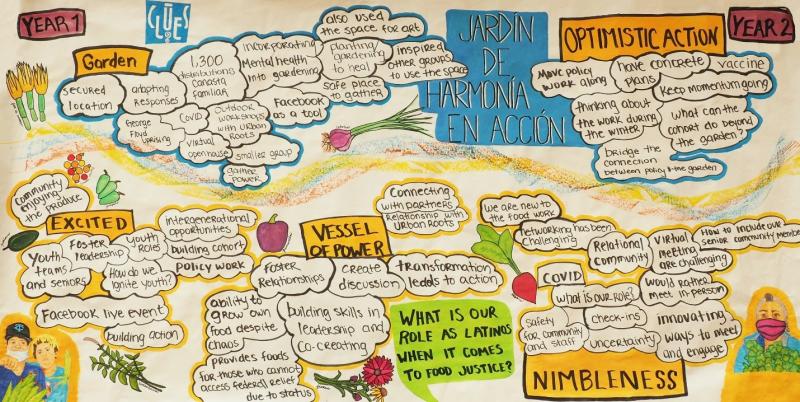 YEAR 1
CLUES
Garden
secured
location
adapting
Responses
1,300
distributions
Canasta
familiar
incorporating
Mental health
into gardening
also used
the space for art
planting/
gardening
to heal
inspired
other groups
to use the space
safe place
to gather
Facebook
as a tool
George
Floyd
uprising
COVID
virtual
open house
outdoor
workshops
with urban
Roots
smaller group
gather
power
JARDÍN
DE
HARMONÍA
EN ACCIÓN
OPTIMISTIC ACTION
YEAR 2
Move policy
work along
have concrete
plans
vaccine
Keep momentum going
thinking about
the work during
the winter
What can the
cohort do beyond
the garden?
bridge the
connection
between policy & the garden
Community
enjoying
the produce
EXCITED
Youth
teams
and seniors
Foster
leadership
youth
roles
How do we
ignite youth?
Facebook live event
building action
intergenerational
opportunities
building cohort
policy work
VESSEL
OF POWER
Connecting
with partners
Relationship with
Urban Roots
foster
Relationships
create
discussion
transformation
leads to action
ability to
grow own
food despite
chaos
building skills in
leadership and
co-creating
provides foods
for those who cannot
access federal relief
due to status
WHAT IS OUR
ROLE AS LATINOS
WHEN IT COMES
TO FOOD JUSTICE?
we are new to
the food work
networking has been
challenging
Relational
community
virtual
meeting
are challenging
How to include our
senior community membe
COVID
what is our role?
would rather
meet in-person
safety
for community
and staff
check-ins
uncertainty
innovating
ways to meet
and engage
NIMBLENESS